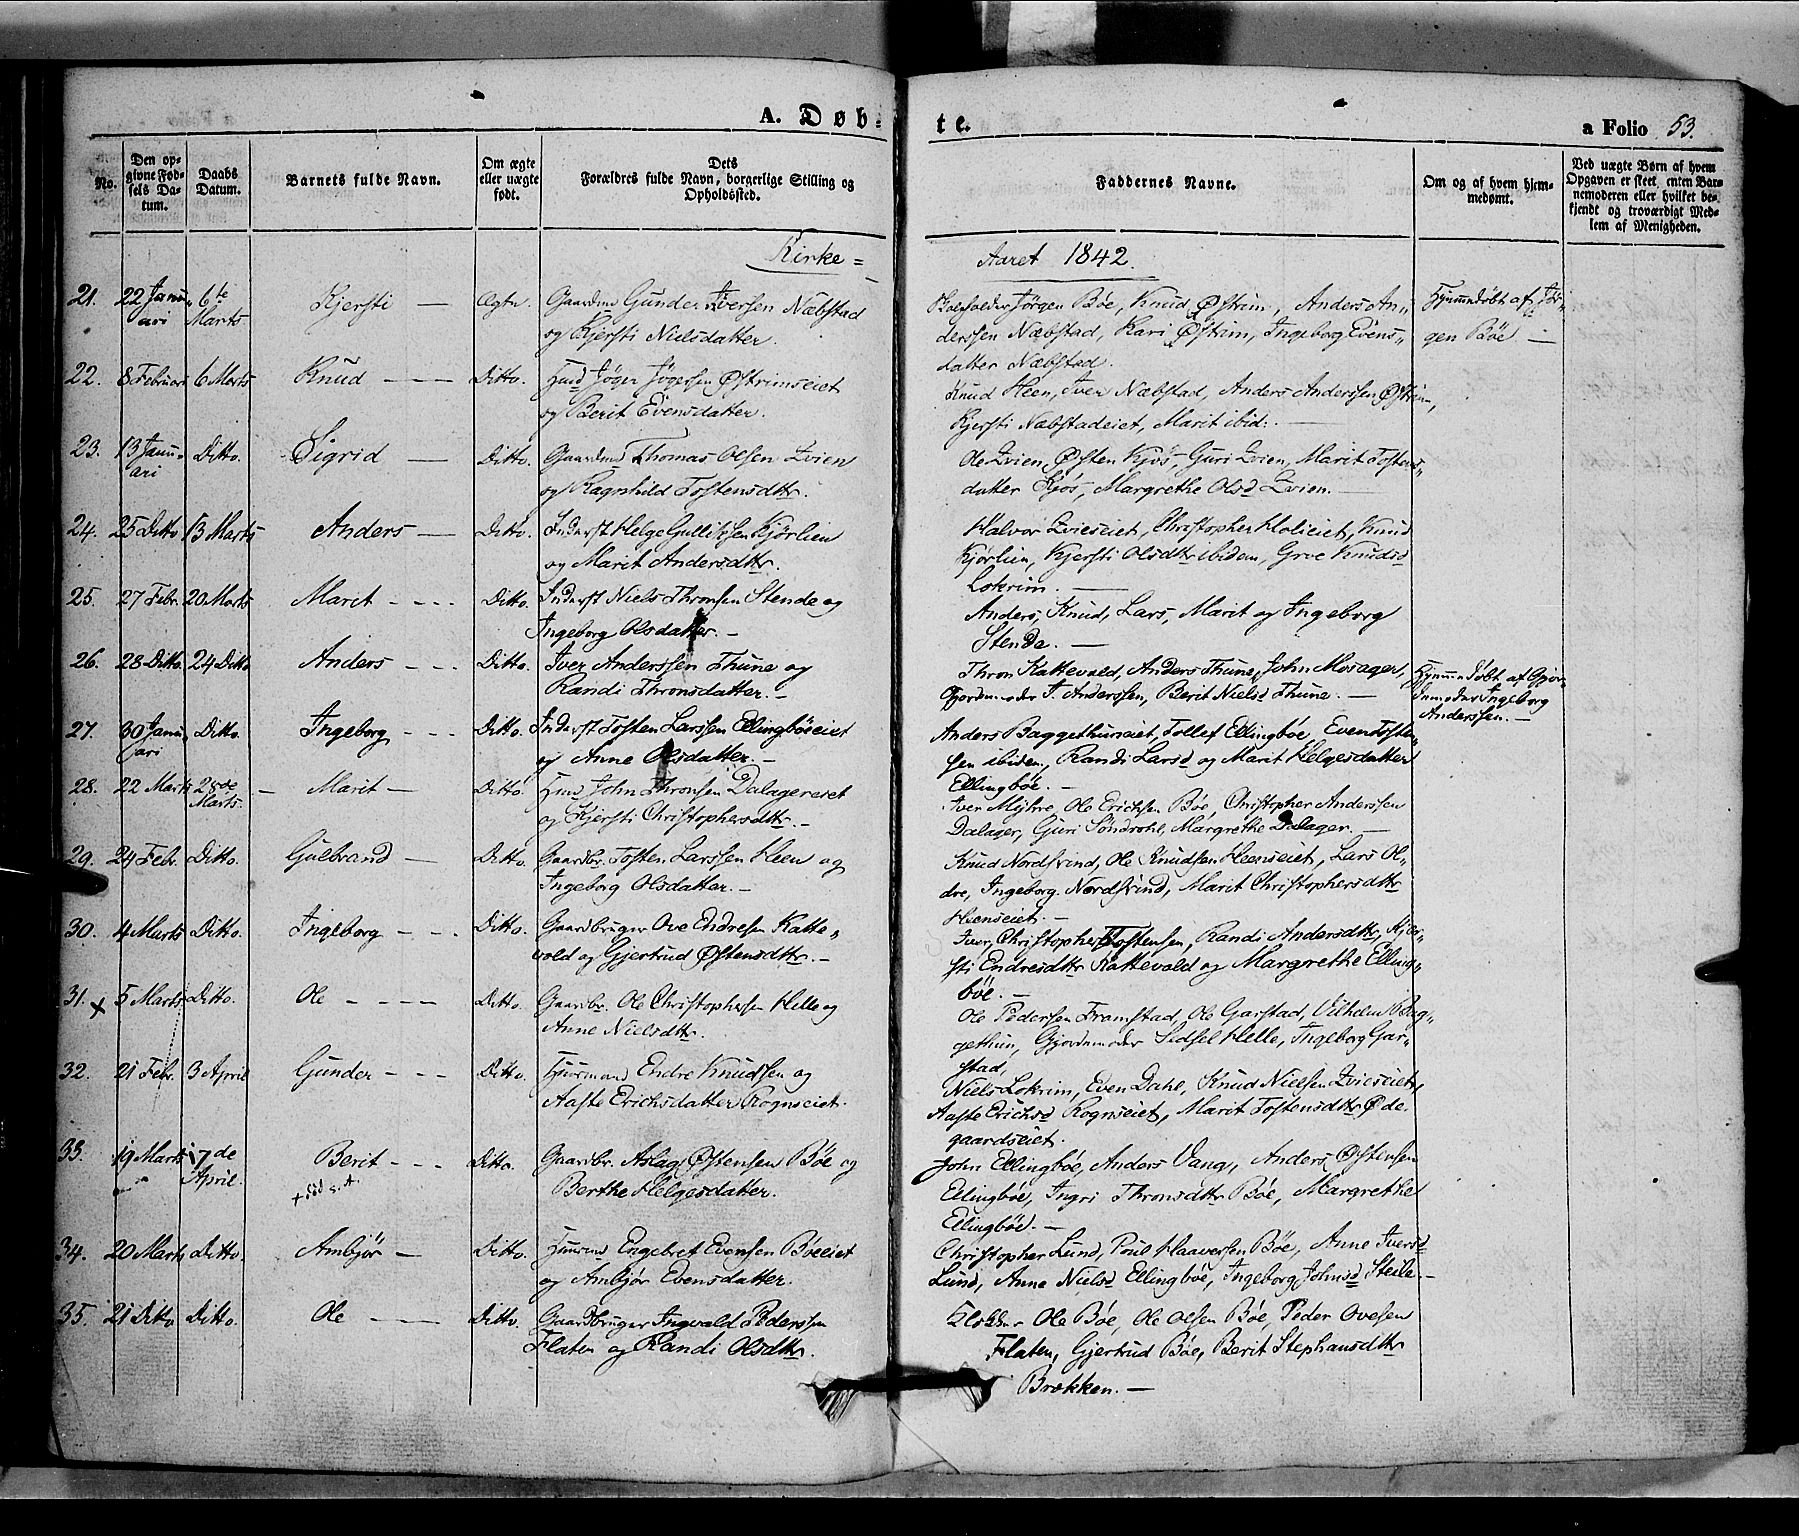 A. Døb-
te.
a Folio 53.
No.
Den op-
givne Fød-
sels Da-
tum.
Daabs
Datum.
Barnets fulde Navn.
Om ægte
eller uægte
født.
Dets
Forældres fulde Navn, borgerlige Stilling og
Opholdssted.
Faddernes Navne.
Om og af hvem hjem-
medømt.
Ved uægte Børn af hvem
Opgaven er skeet, enten Bar-
nemoderen eller hvilket be-
kjendt og troværdigt Med-
lem af Menigheden.
Kirke=
Aaret 1842.
21. 22 Janu-
ari
6te
Marts
Kjersti — Ægte.
Gaardmd Gunder Iversen Næbstad
og Kjersti Nielsdatter.
Jørgen Bøe, Knud Østrim, Anders An-
derssen Næbstad, Kari Østrim, Ingeborg Evens-
datter Næbstad.
Hjemmedøbt af Jør-
gen Bøe —
22. 8 Februari 6 Marts Knud — Ditto.
Husmd Jøger Jøgersen Østrimseiet
og Berit Evensdatter.
Knud Heen, Iver Næbstad, Anders Anderssen Østrim,
Kjersti Næbstadeiet, Marit ibid: —
23. 13 Janu-
ari
Ditto. Sigrid — Ditto.
Gaardmd Thomas Olsen Zvien
og Ragnhild Tostensdtr.
Ole Zvien, Østen Kjøs, Guri Zvien, Marit Tostens-
datter Kjøs, Margrethe Olsd Zvien. —
24. 25 Ditto 13 Marts Anders — Ditto.
Inderst Helge Gulliksen Kjørlien
og Marit Andersdtr.
Halvor Zvieseiet, Christopher Holieiet, Knud
Kjørlien, Kjersti Olsdtr ibidem, Groe Knudsd
Lokrim. —
25. 27 Febr. 20 Marts Marit — Ditto.
Inderst Niels Thronsen Stende og
Ingeborg Olsdatter. —
Anders, Knud, Lars, Marit og Ingeborg
Stende. —
26. 28 Ditto. 24 Ditto Anders — Ditto.
Iver Anderssen Thune og
Randi Thronsdatter. —
Thron Kattevold, Anders Thune, John Mosager,
Gjordemoder I. Anderssen, Berit Nielsd Thune. —
Hjemmedøbt af Gjor-
demoder Ingeborg
Anderssen. —
27. 30 Janu-
ari
Ditto. Ingeborg — Ditto.
Inderst Tosten Larssen Ellingbøeeiet
og Anne Olsdatter. —
Anders Baggethuneiet, Tollef Ellingbøe, Even Tosten-
sen ibidem, Randi Larsd og Marit Helgesdatter
Ellingbøe. —
28. 22 Marts 28de
Marts
— Marit — Ditto
Husmd John Thronsen Dalagereiet
og Kjersti Christophersdtr. —
Iver Myhre, Ole Erichsen Bøe, Christopher Anderssen
Dalager, Guri Søndrohl, Margrethe Dalager. —
29. 24 Febr. Ditto. Gulbrand — Ditto.
Gaardbr. Tosten Larssen Heen og
Ingeborg Olsdatter. —
Knud Nordsvind, Ole Knudsen Heenseiet, Lars Ol-
dre, Ingeborg Nordsvind, Marit Christophersdtr
Heenseiet. —
30. 4 Marts Ditto. Ingeborg — Ditto.
Gaardbruger Ove Endresen Katte-
vold og Gjertrud Østensdtr. —
Iver, Christopher Tostensen, Randi Andersdtr, Kjer-
sti Endresdtr Kattevold og Margrethe Elling-
bøe. —
31. x 5 Marts Ditto. Ole — Ditto.
Gaardbr. Ole Christophersen Helle og
Anne Nielsdtr.
Ole Pedersen Framstad, Ole Garstad, Vilhelm Bag-
gethun, Gjordemoder Sidsel Helle, Ingeborg Gar-
stad,
32. 21 Febr. 3 April Gunder — Ditto.
Huusmand Endre Knudsen og
Aaste Erichsdatter Rognseiet.
Niels Lokrim, Even Dahl, Knud Nielsen Zvieseiet,
Aaste Erichsd Rognseiet, Marit Tostensdtr Øde-
gaardseiet.
33. 19 Marts 17de
April.
Berit —
+ død s. A.
Ditto.
Gaardbr. Aslag Østensen Bøe og
Berthe Helgesdatter.
John Ellingbøe, Anders Vang, Anders Østensen
Ellingbøe, Ingri Thronsdtr Bøe, Margrethe
Ellingbøe. —
34. 20 Marts Ditto. Ambjør — Ditto.
Huusmd Engebret Evensen Bøeeiet
og Ambjør Evensdatter.
Christopher Lund, Poul Haaversen Bøe, Anne Iversd
Lund, Anne Nielsd Ellingbøe, Ingeborg Johnsd Steile. —
35. 21 Ditto Ditto. Ole — Ditto.
Gaardbruger Ingvald Pederssen
Flaten og Randi Olsdtr.
Klokker Ole Bøe, Ole Olsen Bøe, Peder Ovesen
Flaten, Gjertrud Bøe, Berit Stephansdtr
Brækken. —